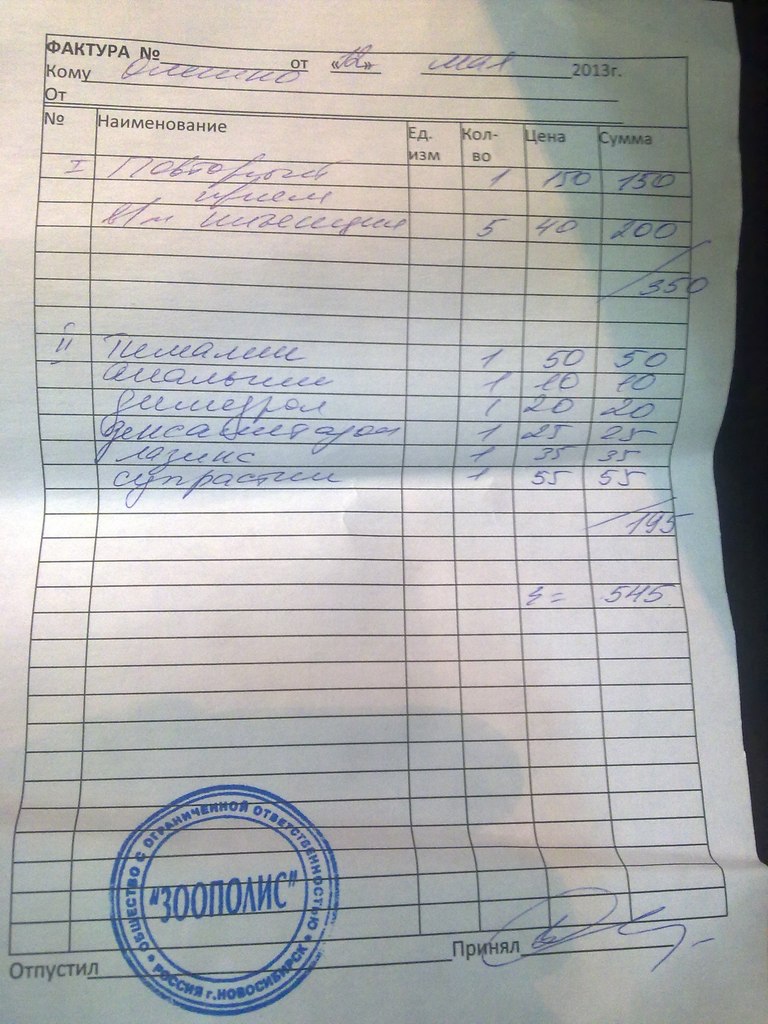 ФАКТУРА № от «12» мая 2013г.
Кому
От
№ Наименование Ед. изм Кол-во Цена Сумма
I Повторный 1 150 150
прием
в/м инъекция 5 40 200
350
II Тималин 1 50 50
анальгин 1 10 10
димедрол 1 20 20
дексаметазон 1 25 25
лазикс 1 35 35
супрастин 1 55 55
195
Σ= 545
ОБЩЕСТВО С ОГРАНИЧЕННОЙ ОТВЕТСТВЕННОСТЬЮ
"ЗООПОЛИС"
РОССИЯ г.НОВОСИБИРСК
Отпустил Принял